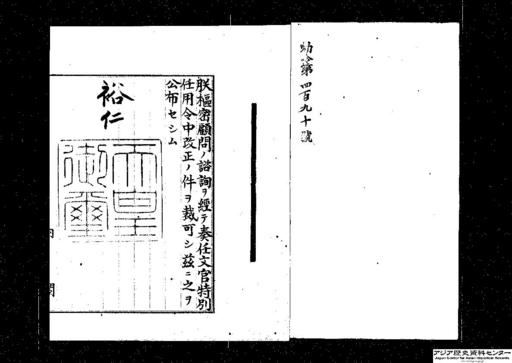 勅令第四百九十號
朕樞密顧問ノ諮詢ヲ經テ奏任文官特別
任用令中改正ノ件ヲ裁可シ茲ニ之ヲ
公布セシム
裕仁
天皇御璽
内閣
アジア歴史資料センター
Japan Center for Asian Historical Records